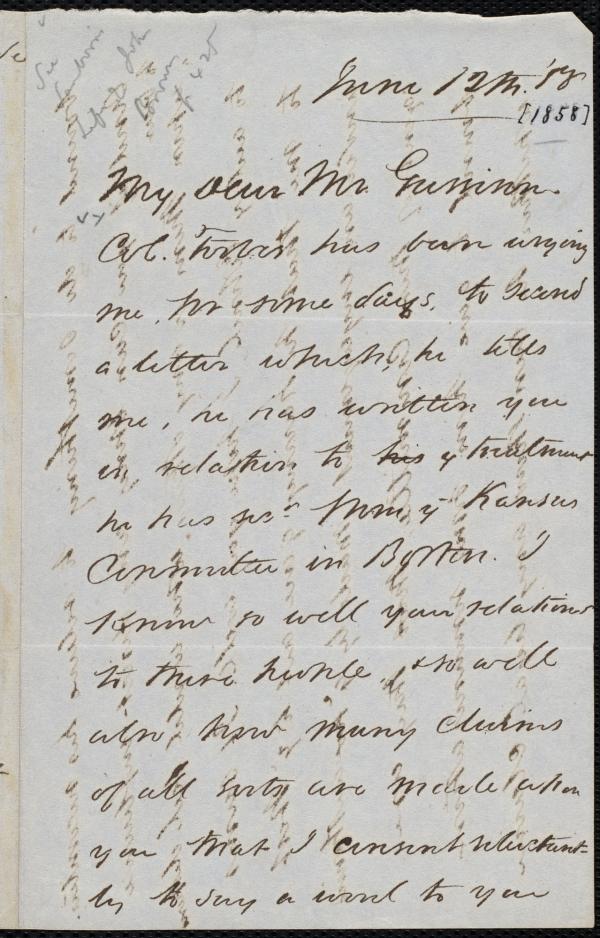 See
Sanborn's
Life of John
Brown
p. 425
June 12th. '58
[1858]
My dear Mr. Garrison.
Col. Forbes has been urging
me, for some days, to second
a letter which, he tells
me, he has written you
in relation to his yͤ treatment
he has recd from yͤ Kansas
Committee in Boston. I
know so well your relations
to these people, & so well
also how many claims
of all sorts are made upon
you that I consent reluctant-
ly to say a word to you